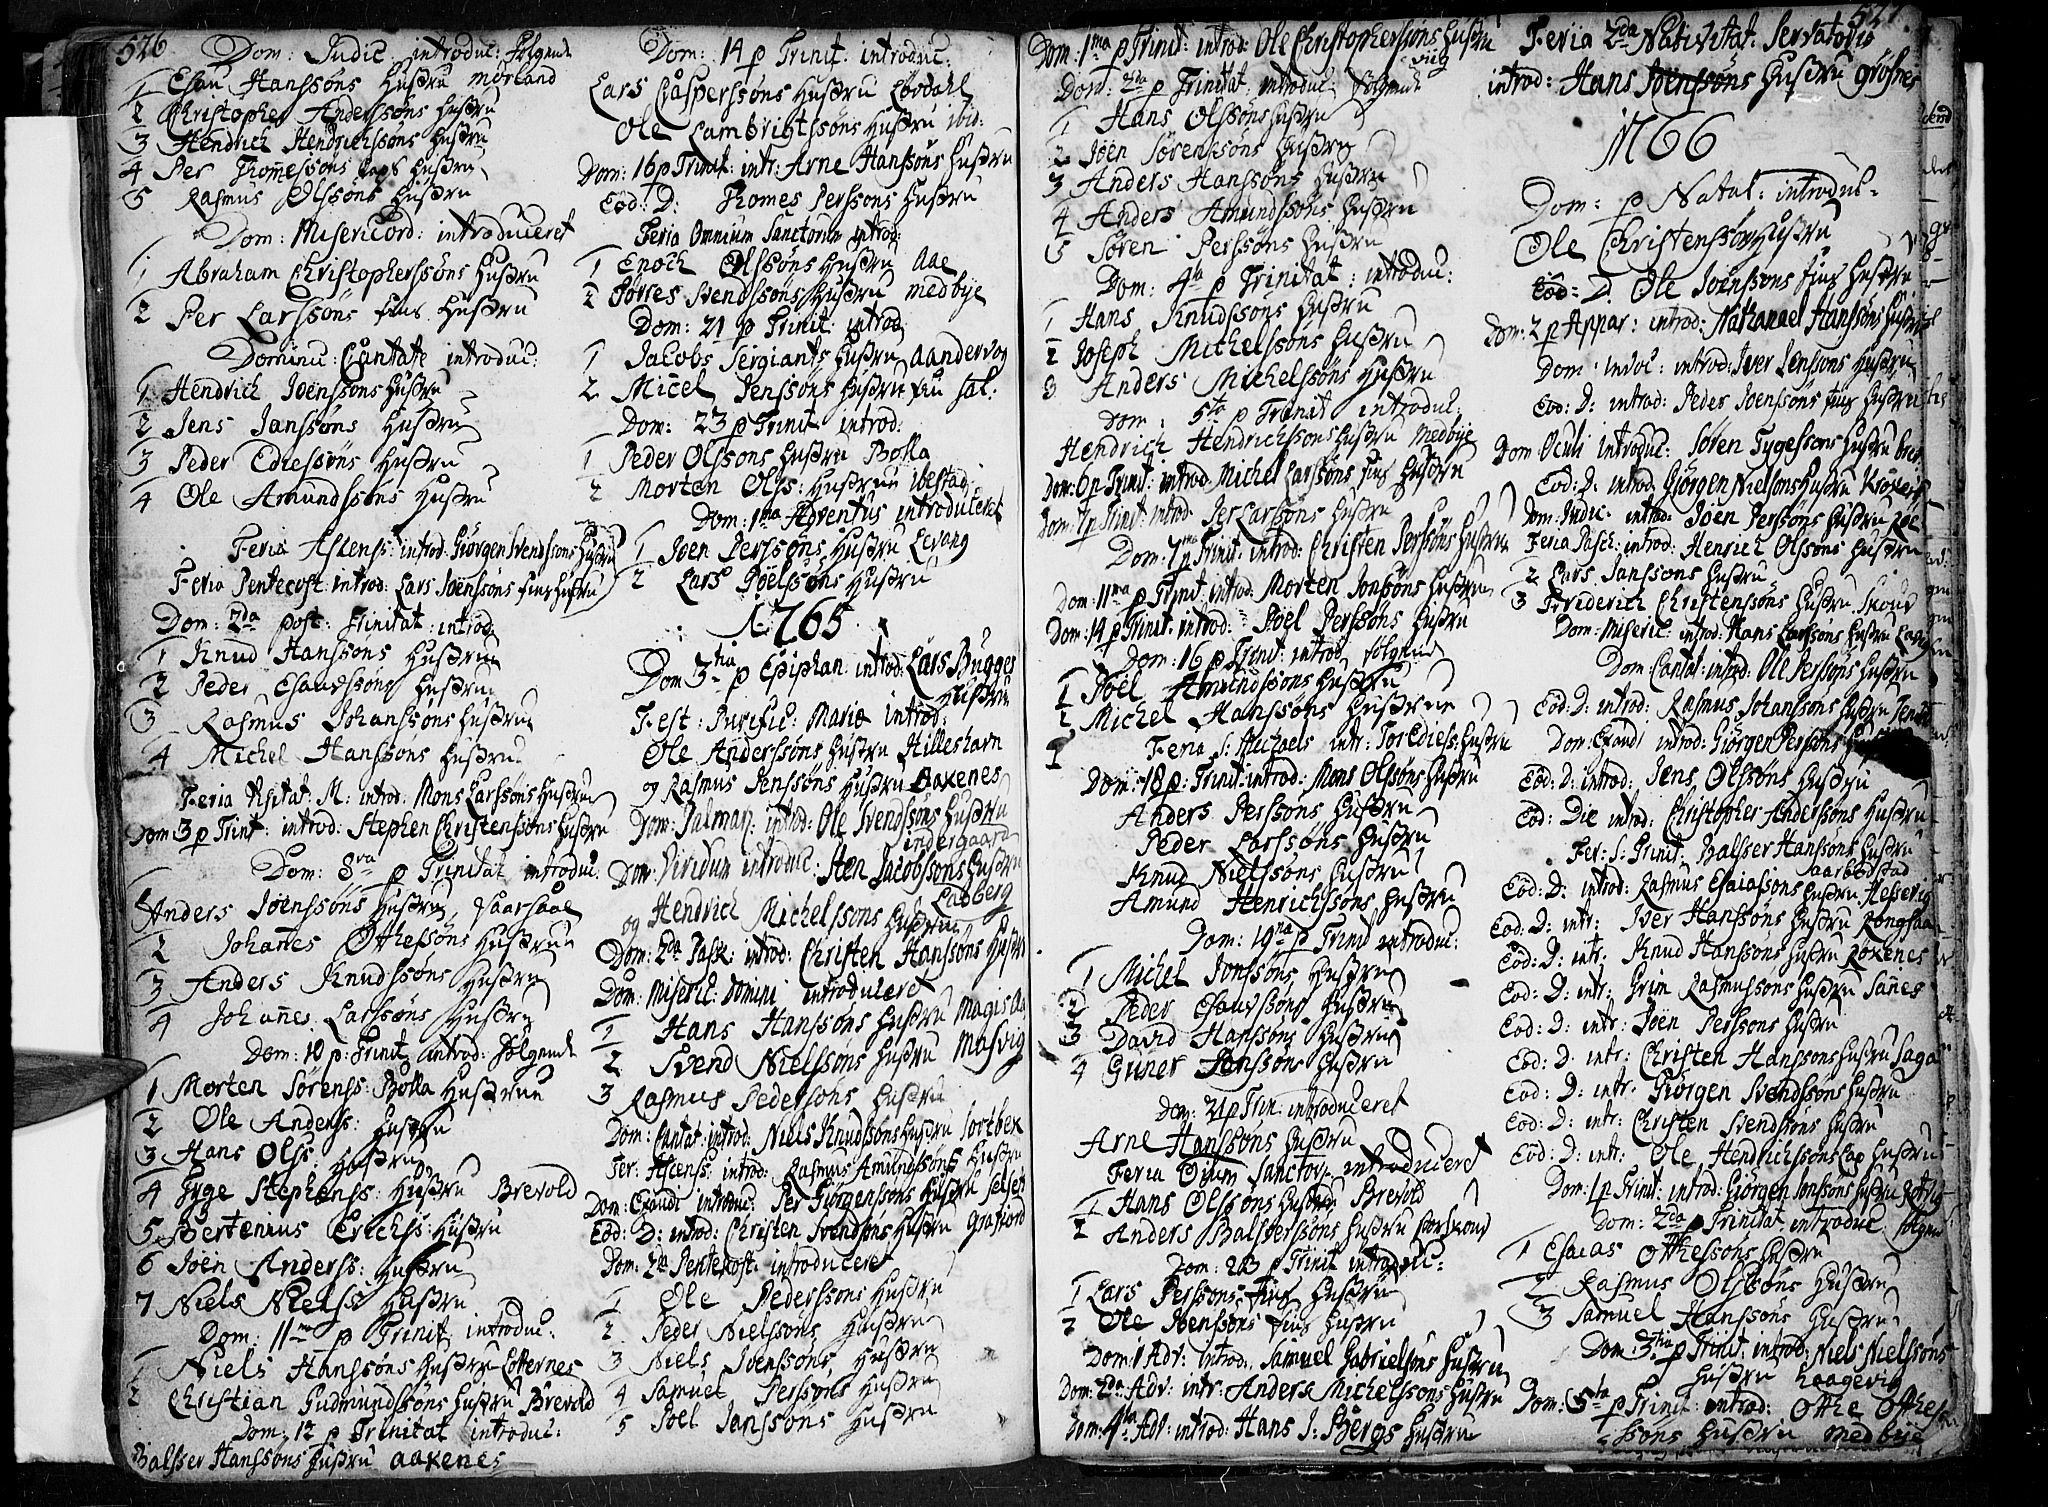 526
Dom: Judic: introduc: følgende
1 Esau Hanssøns Hustru Mørland
2 Christopher Anderssøns Hustru
3 Hendrich Hendrichssøns Hustru
4 Per Thomessøns Hustru
5 Rasmus Olssøns Hustru
Dom: Misericord: introduceret
1 Abraham Christopherssøns Hustru
2 Per Larssøns fins Hustru
Dominic: Cantate introduc:
1 Hendrich Joenssøns Hustru
2 Jens Janssøns Hustru
3 Peder Ediessøns Hustru
4 Ole Amundssøns Hustru
Feria Ascens: introd: Giørgen Svendssøns Hustru
Feria Pentecost: introd: Lars Joenssøns fins Hustru
Dom: 2da post: Trinitat: introd:
1 Knud Hanssøns Hustru
2 Peder Esauvssøns Hustru
3 Rasmus Johanssøns Hustru
4 Michel Hanssøns Hustru
Feria Visitat: M: introd: Mons Larssøns Hustru
Dom 3 p Trint: introd: Stephen Christenssøns Hustru
Dom: 8va p Trinitat introduc:
Anders Joenssøns Hustru
2 Johannes Othessøns Hustru
3 Anders Knudssøns Hustru
4 Johannes Larssøns Hustru
Dom: 10 p: Trinit: introd: følgende
1 Morten Sørenss: Bolla Hustrue
2 Ole Anderss: Hustru
3 Hans Olss: Hustru
4 Tyge Stephenss: Hustru Brevold
5 Bertenius Erichss: Hustru
6 Joen Anderss: Hustru
7 Niels Nielss: Hustru
Dom: 11ma p Trinit: introduc:
1 Niels Hanssøns Hustru
2 Christian Gudmundssøns Hustru Brevold
Dom: 12 p Trinitat introduc:
Balsser Hanssøns Hustru Aakenes
Dom: 14 p Trinit: introduc:
Lars Casperssøns Hustru Løvdahl
Ole Lambrigtssøns Hustru ibid:
Dom: 16 p Trinit: intr: Arne Hanssøns Hustru
Eod: D: Thomes Perssøns Hustru
Feria Omnium Sanctorum introd:
1 Enoch Olssøns Hustru Aae
2 Torres Svendssøns Hustru Medbye
Dom: 21 p Trinit: introd:
1 Jacobs Sergiants Hustru
2 Micel Jenssøns Hustru
Dom: 23 p Trinit: introd:
1 Peder Olssøns Hustru Bolla
2 Morten Olss: Hustrue Ibestad
Dom: 1ma Adventus introduceret
1 Joen Perssøns Hustru Levang
2 Lars Joelssøns Hustru
A: 1765
Dom 3tia p Epiphan: introd: Lars Bugges
Hustru
Fest: Purific: Mariæ introd:
Ole Anderssøns Hustru Hilleshavn
og Rasmus Jenssøns Hustru Aakenes
Dom: Palmar: introd: Ole Svendssøns Hustru
indergaard
Dom: Viridum introduc: Sten Jacobssøns Hustru
og Hendrich Michelssøns Hustru
Dom: 2da Pasc: introd: Christen Hanssøns Hustru
Dom: Misericd: Domini introduceret
1 Hans Hanssøns Hustru
2 Svend Nielssøns Hustru Masvig
3 Rasmus Pederssøns Hustru
Dom: Cantat: introd: Niels Knudssøns Hustru
Fer: Ascenss: introd: Rasmus Amundssøns Hustru
Dom: Exaudi introduc: Per Giørgenssøns Hustru
Eod: D: introd: Christen Svendssøns Hustru Grafiord
Dom: 2da Pentecost: introduceret
1 Ole Pederssøns Hustru
2 Peder Nielssøns Hustru
3 Niels Joenssøns Hustru
4 Samuel Perssøns Hustru
5 Joel Janssøns Hustru
527
Dom: 1ma p Trinit: introd: Ole Christopherssøns Hustru
viig
Dom: 2da p Trinitat: introduc: følgende
1 Hans Olssøns Hustru
2 Joen Sørenssøns Hustru
3 Anders Hanssøns Hustru
4 Anders Amundssøns Hustru
5 Søren Perssøns Hustru
Dom: 4ta p Trinitat: introduc:
1 Hans Knudssøns Hustru
2 Joseph Michelssøns Hustru
3 Anders Michelssøns Hustru
Dom: 5ta p Trinit introduc:
Hendrich Hendrichssøns Hustru Medbye
Dom: 6 p Trinit: introd: Michel Larssøns fins Hustru
Dom: 7 p Trinit: introd: Per Larssøns Hustru
Dom: 7ma p Trinit: introd: Christen Perssøns Hustru
Dom: 11ma p Trinit: introd: Morten Jonssøns Hustru
Dom: 14 p Trinit: introd: Joel Perssøns Hustru
Dom: 16 p Trinit: introd: følgende
1 Joel Amundssøns Hustru
2 Michel Hanssøns Hustrue
Feria S: Michaels intr: Tor Ediess: Hustru
Dom: 18 p: Trinit: introd: Mons Olssøns Hustru
Anders Perssøns Hustru
Peder Larssøns Hustru
Knud Nielssøns Hustru
Amund Henrichssøns Hustru
Dom: 19na p Trinit introduc:
1 Michel Jonssøns Hustru
2 Peder Esauvssøns Hustru
3 David Hanssøns Hustru
4 Guner Hustru
Dom: 21 p Trin: introduceret
Arne Hanssøns Hustru
Feria Omn: Sanctor: introduceret
1 Hans Olssøns Hustru Brevold
2 Anders Balsserssøns Hustru
Dom: 23 p Trinit introduc:
1 Lars Perssøns fins Hustru
2 Ole Joenssøns fins Hustru
Dom: 1 Adv: introd: Samuel Gabrielssøns Hustru
Dom: 2da Adv: intr: Anders Michelssøns Hustru
Dom: 4ta Adv: introd: Hans J: Bergs Hustru
Feria 2da Nativitat: Servatoris
introd: Hans Joenssøns Hustru
1766
Dom: p Natal: introduc:
Ole Christenssøns Hustru
Eod: D: Ole Joenssøns fins Hustru
Dom: 2 p Appar: introd: Nathanael Hanssøns Hustru
Dom: introd: Iver Jenssøns Hustru
Eod: D: introd: Peder Joenssøns fins Hustru
Dom Oculi introduc: Søren Tygessøns Hustru
Eod: D: introd: Giørgen Nielssøns Hustru
Dom: Judic: introd: Joen Perssøns Hustru
Feria Pasch: introd: Henrich Olssøns Hustru
2 Lars Janssøns Hustru
3 Friderich Christenssøns Hustru
Dom: Miseric: introd: Hans Larssøns Hustru
Dom: Cantat: introd: Ole Perssøns Hustru
Eod: D: introd: Rasmus Johanssøns Hustru
Dom: Exaudi introd: Giørgen Perssøns
Eod: D: introd: Jens Olssøns Hustru
Eod: Die introd: Christopher Anderssøns Hustru
Fer: S: Trinit: Balsser Hanssøns Hustru
Eod: D: introd: Rasmus Esaiassøns Hustru
Eod: D: intr: Iver Hanssøns Hustru
Eod: D: intr: Knud Hanssøns Hustru
Eod: D: intr: Grim Rasmussøns Hustru
Eod: D: intr: Joen Perssøns Hustru
Eod: D: intr: Christen Hanssøns Hustru
Eod: D: intr: Giørgen Svendssøns Hustru
Eod: D: intr: Christen Svendssøns Hustru
Eod: D: intr: Ole Hendrichssøns Hustru
Dom: 1 p Trinit: introd: Giørgen Jonssøns Hustru
Dom: 2da p Trinitat introduc følgende
1 Esaias Othessøns Hustru
2 Rasmus Olssøns Hustru
3 Samuel Hanssøns Hustru
Dom: 3tia p Trinit: introd: Niels Nielssøns
Hustru
Dom: 5ta p Trinit: introd: Othe Othes
søns Hustru Medbye